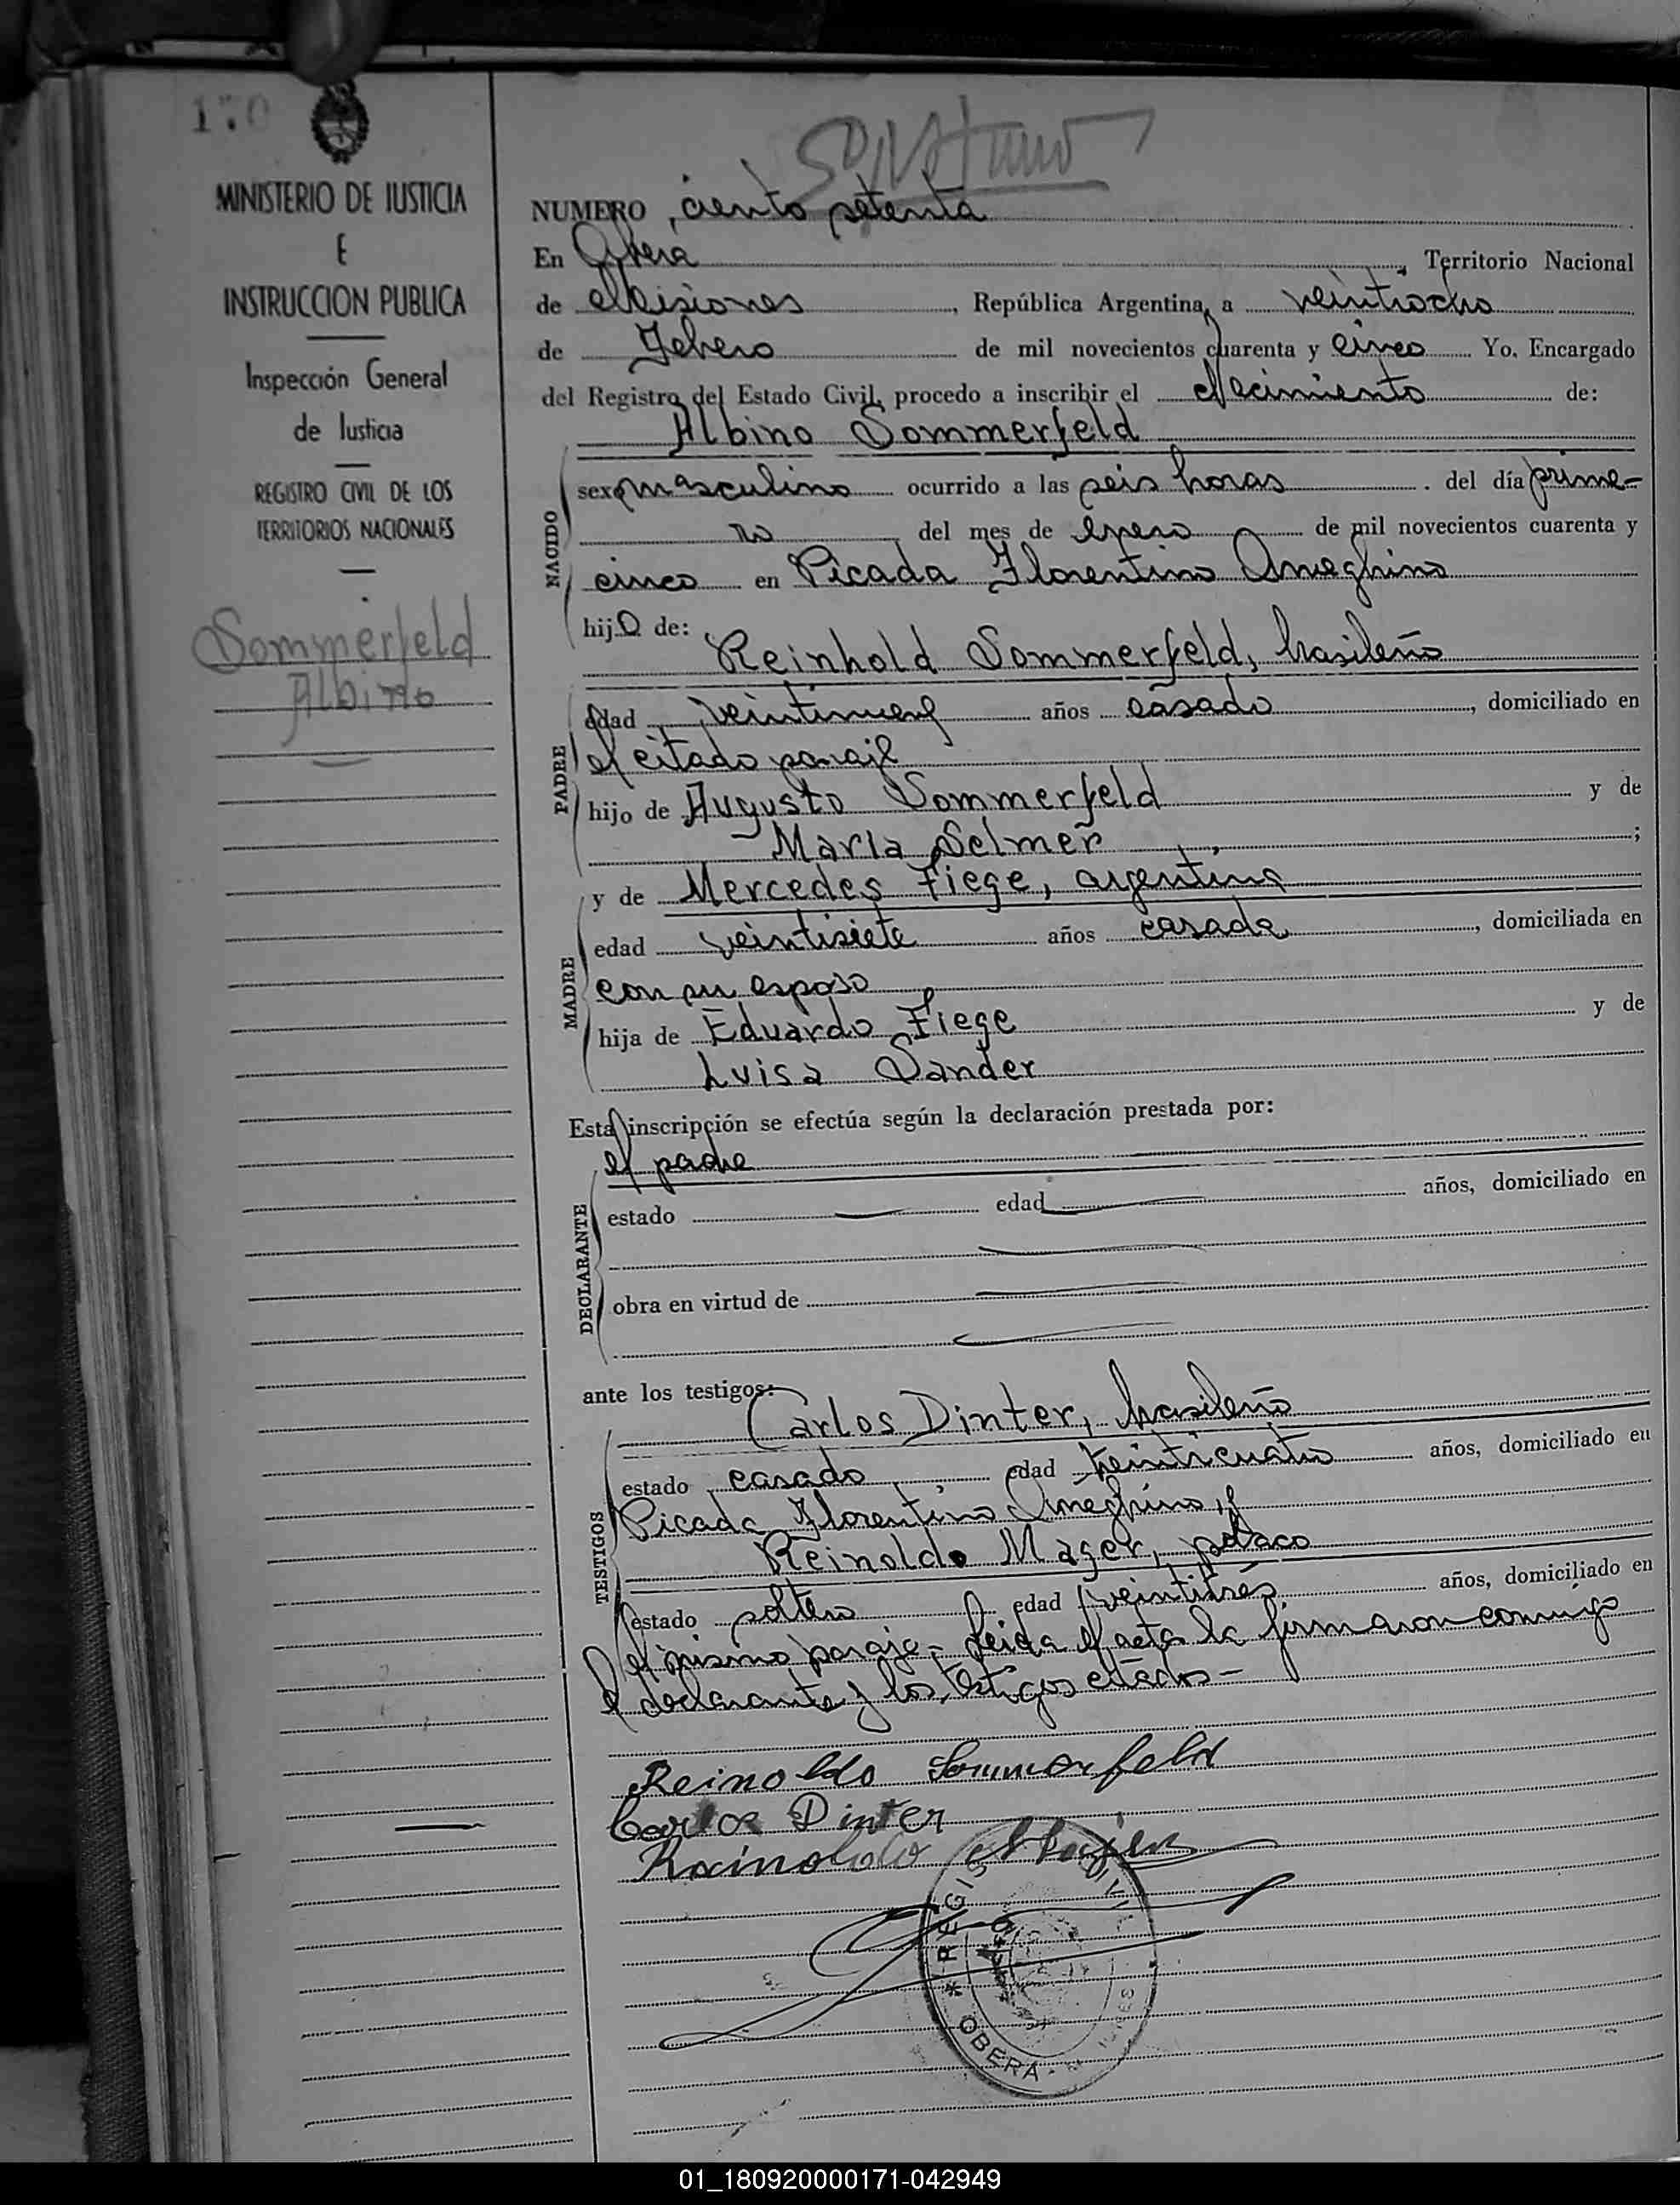 170
MINISTERIO DE JUSTICIA
E
INSTRUCCION PUBLICA
Inspección General
de Justicia
REGISTRO CIVIL DE LOS
TERRITORIOS NACIONALES
Sommerfeld
Albino
NUMERO ciento setenta
En Oberá, Territorio Nacional
de Misiones, República Argentina, a veintiocho
de Febrero de mil novecientos cuarenta y cinco Yo, Encargado
del Registro del Estado Civil, procedo a inscribir el Nacimiento de:
Albino Sommerfeld
NACIDO
sexo masculino ocurrido a las seis horas del día prime-
ro del mes de enero de mil novecientos cuarenta y
cinco en Picada Florentino Ameghino
hijo de:
Reinhold Sommerfeld, brasileño
PADRE
edad veintinueve años casado, domiciliado en
el citado paraje
hijo de Augusto Sommerfeld y de
Maria Selmer;
y de Mercedes Fiege, argentina
MADRE
edad veintisiete años casada, domiciliada en
con su esposo
hija de Eduardo Fiege y de
Luisa Sander
Esta inscripción se efectúa según la declaración prestada por:
el padre
DECLARANTE
estado edad años, domiciliado en
obra en virtud de
ante los testigos:
Carlos Dinter, brasileño
TESTIGOS
estado casado edad treinticuatro años, domiciliado en
Picada Florentino Ameghino, y
Reinoldo Mager, polaco
estado soltero edad veintitres años, domiciliado en
el mismo paraje - Leida el acta la firmaron conmigo
el declarante y los testigos citados -
Reinoldo Sommerfeld
Carlos Dinter
Reinoldo Mager
REGISTRO CIVIL
OBERA
01_180920000171-042949